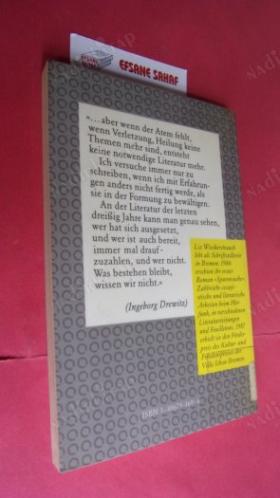 EFSANE SAHAF
«...aber wenn der Atem fehlt,
wenn Verletzung, Heilung keine
Themen mehr sind, entsteht
keine notwendige Literatur mehr.
Ich versuche immer nur zu
schreiben, wenn ich mit Erfahrun-
gen anders nicht fertig werde, als
sie in der Formung zu bewältigen.
An der Literatur der letzten
dreißig Jahre kann man genau sehen,
wer hat sich ausgesetzt,
und wer ist auch bereit,
immer mal drauf-
zuzahlen, und wer nicht.
Was bestehen bleibt,
wissen wir nicht.»
(Ingeborg Drewitz)
lebt als Schriftstellerin
in Bremen. 1986
erschien ihr erster
Roman
Zahlreiche
und literarische
Arbeiten beim
funk, in verschiedenen
Literaturzeitungen
und Feuilletons. 1987
erhielt sie den Förder-
preis des Kultur- und
Bremen.
ISBN